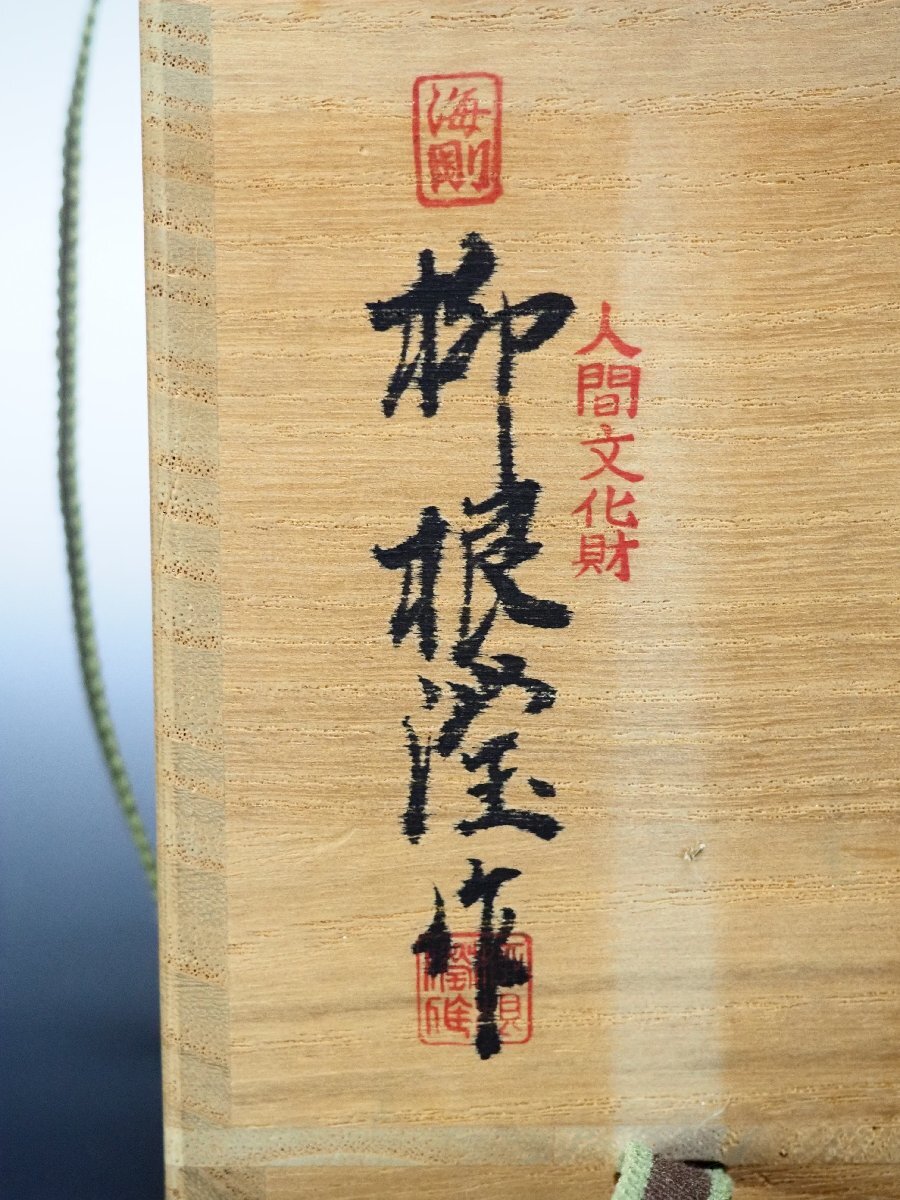 人間文化財
海剛
柳根瀅作